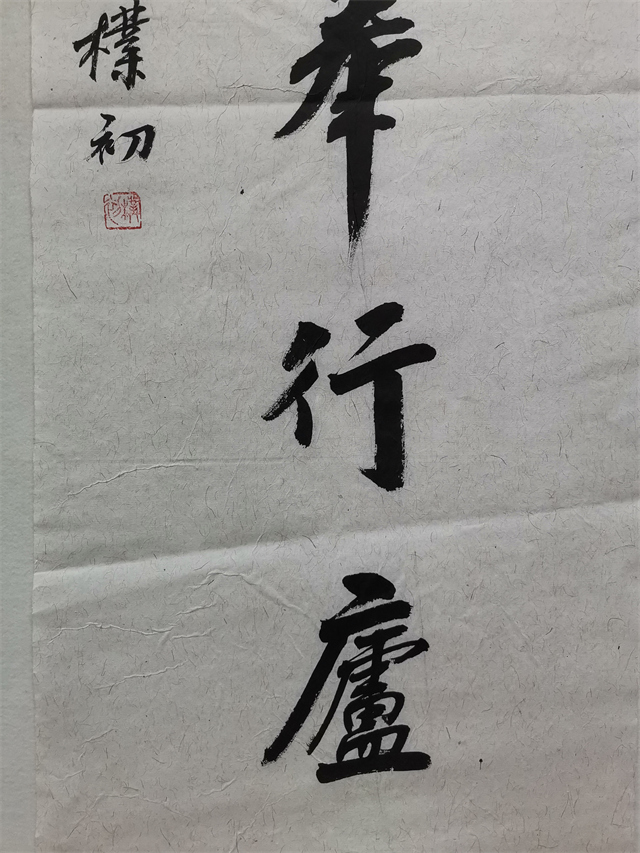 行廬
樸初